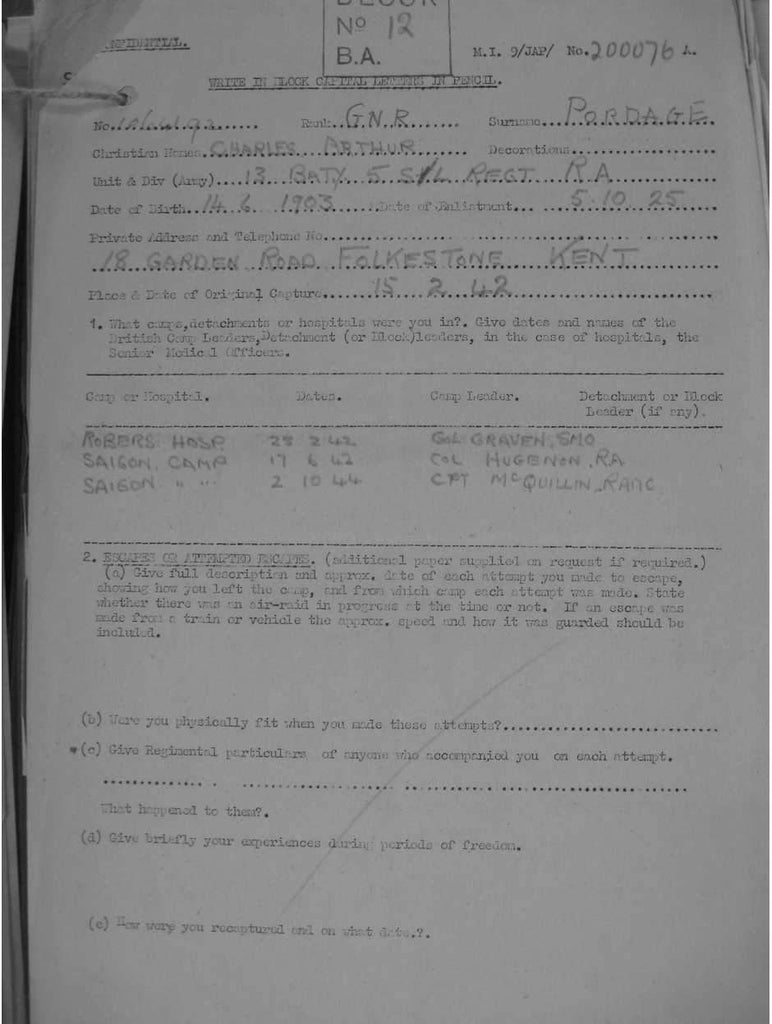 No 12
B.A.
CONFIDENTIAL.
M.I. 9/JAP/ No. 200076 A.
WRITE IN BLOCK CAPITAL LETTERS IN PENCIL.
No. Rank. G.N.R. Surname. PORDAGE.
Christian Names. CHARLES ARTHUR. Decorations.
Unit & Div (Army). 13 BATY 5 S/L REGT R.A
Date of Birth. 14. 6. 1903. Date of Enlistment. 5.10.25.
Private Address and Telephone No.
18 GARDEN ROAD FOLKESTONE KENT
Place & Date of Original Capture. 15 2 42
1. What camps,detachments or hospitals were you in?. Give dates and names of the
British Camp Leaders,Detachment (or Block)leaders, in the case of hospitals, the
Senior Medical Officers.
Camp or Hospital. Dates. Camp Leader. Detachment or Block
Leader (if any).
ROBERS HOSP 28 2 42 COL GRAVEN, SMO
SAIGON, CAMP 17 6 42 COL HUGENON, RA
SAIGON " " 2 10 44 CPT McQUILLIN, RAMC
2. ESCAPES OR ATTEMPTED ESCAPES. (additional paper supplied on request if required.)
(a) Give full description and approx. date of each attempt you made to escape,
showing how you left the camp, and from which camp each attempt was made. State
whether there was an air-raid in progress at the time or not. If an escape was
made from a train or vehicle the approx. speed and how it was guarded should be
included.
(b) Were you physically fit when you made these attempts?.
*(c) Give Regimental particulars of anyone who accompanied you on each attempt.
What happened to them?.
(d) Give briefly your experiences during periods of freedom.
(e) How were you recaptured and on what date.?.